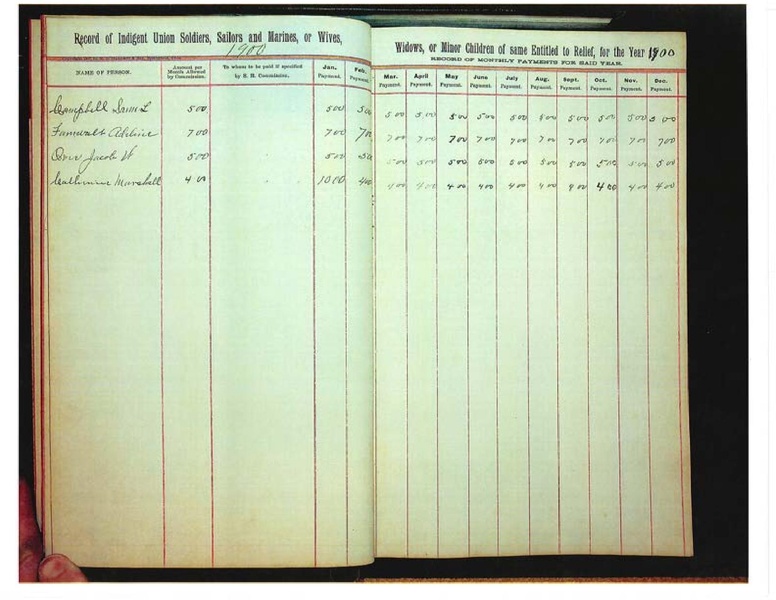 Record of Indigent Union Soldiers, Sailors and Marines, or Wives,
1900
Widows, or Minor Children of same Entitled to Relief, for the Year 1900
RECORD OF MONTHLY PAYMENTS FOR SAID YEAR.
NAME OF PERSON. Amount per Month Allowed by Commission. To whom to be paid if specified by S. R. Commission. Jan. Payment. Feb. Payment. Mar. Payment. April Payment. May Payment. June Payment. July Payment. Aug. Payment. Sept. Payment. Oct. Payment. Nov. Payment. Dec. Payment.
Campbell Saml 5 00 5 00 5 00 5 00 5 00 5 00 5 00 5 00 5 00 5 00 5 00 5 00 5 00
7 00 7 00 7 00 7 00 7 00 7 00 7 00 7 00 7 00 7 00 7 00 7 00 7 00
Jacob W 5 00 5 00 5 00 5 00 5 00 5 00 5 00 5 00 5 00 5 00 5 00 5 00 5 00
Marshall 4 00 10 00 4 00 4 00 4 00 4 00 4 00 4 00 4 00 4 00 4 00 4 00 4 00